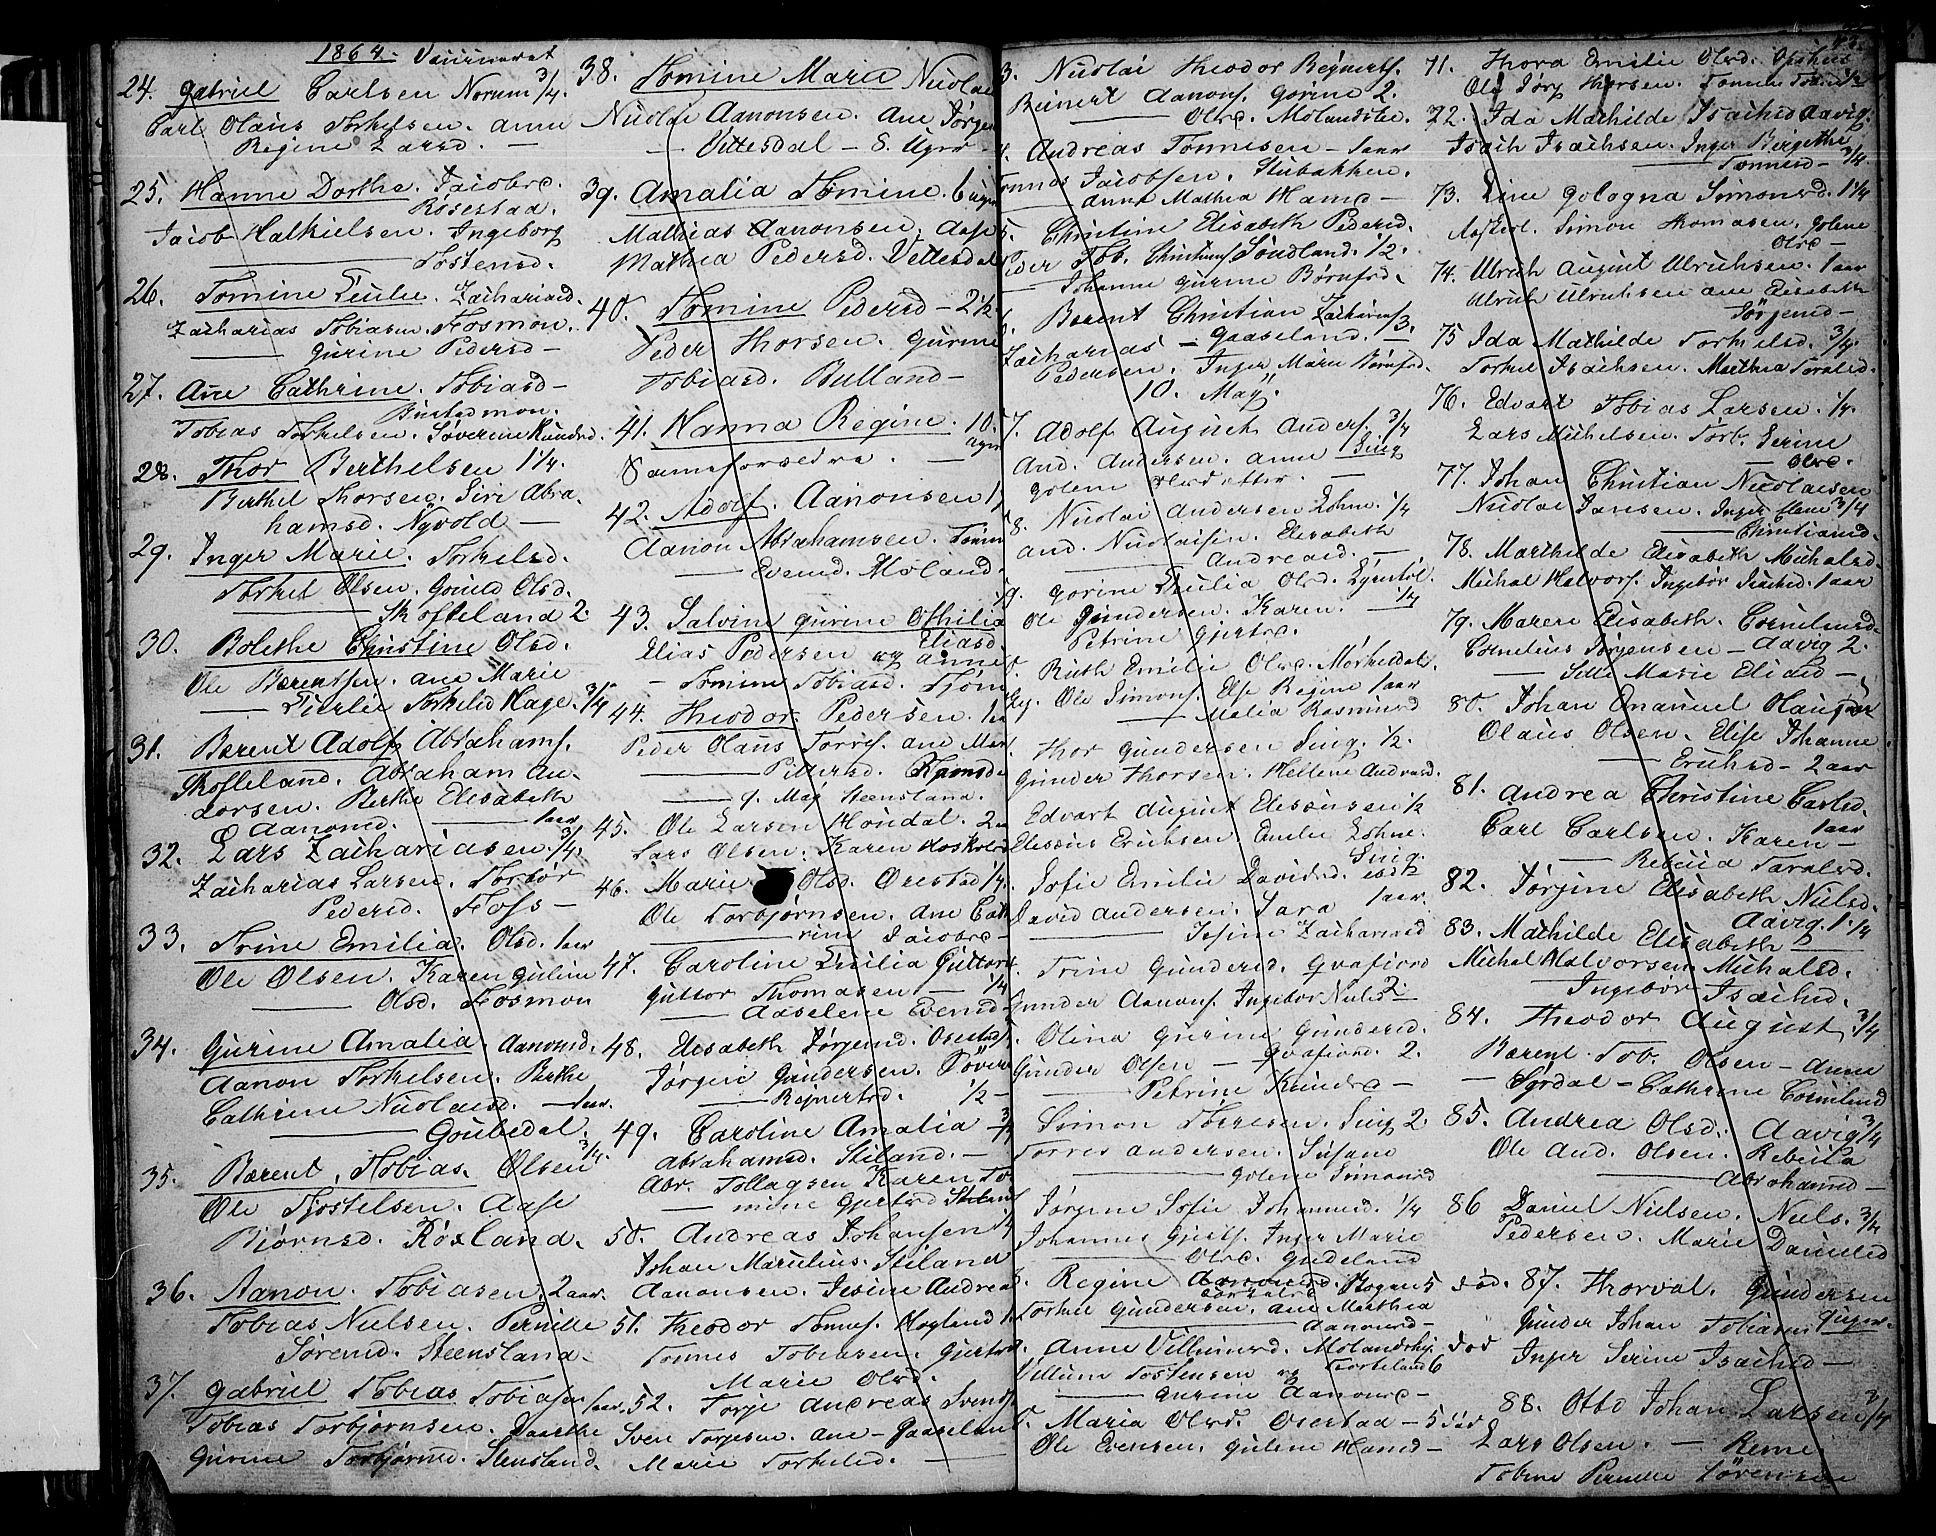 1864. Vaccineret
24. Gabriel Carlsen Norum 3/4.
Carl Olaus Torkelsen. Anne
Regine Larsd. —
25. Hanne Dorthe. Jacobsd.
Røsestad.
Jacob Halkielsen. Ingeborg
Tostensd.
26. Tomine Zachariasd.
Zacharias Tobiasen. Fosmon.
Gurine Pedersd —
27. Ane Cathrine. Tobiasd —
Tobias Torkelsen. Søverine Knudsd.
28. Thor Berthelsen 1 1/4.
Berthel Thorsen. Siri Abra
hamsd. Nyvold —
29. Inger Marie. Torkelsd.
Torkel Olsen. Gunild Olsd.
Skofteland 2.
30. Bolethe Christine Olsd.
Ole Berentsen. Ane Marie
Torkelsd Hage. 3/4
31. Berent Adolf Abrahams.
Skofteland. Abraham An-
dersen. Berthe Elisabeth
Aanonsd. — 1 aar
32. Lars Zachariasen. 3/4.
Zacharias Larsen. Torbor
Pedersd. Foss —
33. Trine Emilia. Olsd. 1 aar
Ole Olsen. Karen Guline
Olsd. Fosmon
34. Gurine Amalia. Aanonsd.
Aanon Torkelsen. Berthe
Cathrine Nicolaisd. — 1 aar.
35. Berent. Tobias. Olsen 3/4.
Ole Tostelsen. Aase
Bjørnsd. Røsland.
36. Aanon. Tobiasen. 2 aar.
Tobias Nielsen. Pernille
Sørensd. Steensland.
37. Gabriel Tobias Tobiasen 1 aar.
Tobias Torbjørnsen. Daarthe
Gurine Torbjørnsd. Stensland.
38. Tomine Marie Nicolai
Nicolai Aanonsen. Ane Jørgen
— Vittesdal — 8. Uger
39. Amalia Tomine. 6 uger
Mathias Aanonsen. Aase
Mathea Pedersd. Vettesdal
40. Tomine Pedersd — 2 1/2.
Peder Thorsen. Gurine
Tobiasd. Bulland —
41. Nanna Regine. 10.
Samme forældre. —
42. Adolf. Aanonsen
Aanon Abrahamsen. Tomin
Evensd. Moland.
43. Salvine Gurine Othilia
Eliasd.
Elias Pedersen og Anne
— Tomine Tobiasd.
44. Theodor Pedersen.
Peder Olaus
9. May Steensland.
45. Ole Larsen Houdal. 2
Lars Olsen. Karen
46. Marie Olsd. Orestad 1/4.
Ole Torbjørnsen. Ane Cath
rine Jacobsd —
47. Caroline Guttors
Guttor Thomasen — 1/4
Aaselene Evensd
48. Elisabeth Jørgensd. Orestad
Jørgen Gundersen. Søver
— Reinertsd. 1/2 —
49. Caroline Amalia
Abrahamsd. Stiland. —
Abr. Tollagsen Karen To
mine Gjertsd Stiland
50. Andreas Johansen 1/4
Johan Marculius. Stiland
Aanonsen. Jesine Andrea
51. Theodor Tønnes. Høyland
Tønnes Tobiasen. Gjertrud
Marie Olsd.
52. Torje Andreas Svends
Sven Torjesen. Ane — Gaaseland
Marie Torkelsd.
3. Nicolai Theodor Reinerts.
Reinert Aanons. Gorine 2.
Olsd. Molandsie.
Andreas Tønnesen — 1 aar
Tønnes Jacobsen. Stubakken.
Anne Mathea Hansd —
5. Christine Elisabeth Pedersd.
Peder Tob. Sondland. 1/2.
Johanne Gurine Børufsd —
Berent Christian Zacharias 3.
Zacharias — Gaaseland. —
Pedersen. Inger Marie Børufsd.
10. May.
7. Adolf August Anders. 3/4
And. Andersen. Anne Ling
Golene Olsd
8. Nicolai Andersen Lohne. 1/4
And. Nicolaisen. Elisabeth
Andreasd. —
9. Gorine Olsd.
Ole Gundersen. Karen. — 1/4
Petrine Gjertsd.
Ruth Emilie Olsd.
Ole Simons. Else Regine 1 aar
Malia Rasmusd
Thor Gundersen Ling. 1/2.
Gunder Thorsen. Hellene Andreasd.
Edvart August Elessusen 1/2
Elessus Erichsen. Emilie Lohne.
Sofie Emilie Davidsd. Ling.
David Andersen. Sara 1 aar.
Jesine Zachariasd
Trine Gundersd. Qvafiord
Gunder Aanons. Ingebor Nielsd 2.
Olina Gurine Gundersd.
Gunder Olsen — Qvafiord. 2.
Petrine Knudsd —
Simon Torresen. Ling 2.
Torres Andersen. Susane
Golene Simonsd
Jørgine Sofie Johannesd. 1/4
Johannes Inger Marie
Olsd. Gudeland
Regine Aanonsd. 5 død.
Torkel Gundersen. Ane Marthea
Aanonsd —
Anne Villumsd. død
Villum Tostensen og
Gurine Aanonsd —
Maria Olsd. Orestad — 5 død
Ole Evensen. Gulene Hansd —
71. Thora Emilie Olsd.
Ole Jørg Thorsen.
72. Ida Mathilde Isachsd Aavig.
Isach Isachsen. Inger Bergethe 3/4
Tønnesd —
73. Line Gologna Simonsd. 1 1/4
Simon Thomasen. Golene
Olsd —
74. Ulrich August Ulrichsen. 1 aar
Ulrich Ulrichsen Ane Elisabeth
Jørgensd —
75 Ida Mathilde Torkelsd. 3/4.
Torkel Isachsen. Marthea Taralsd.
76. Edvart Tobias Larsen. 1/4.
Lars Michelsen. Torb. Serine
Olsd.
77. Johan Christian Nicolaisen
Nicolai Jansen. Inger Elene 3/4
Christiansd.
78. Marthilde Elisabeth Michalsd.
Michal Halvors. Ingebor Isachsd. 1 aar
79. Maren Elisabeth. Corneliusd.
Cornelius Jørgensen — Aavig 2.
— Sille Marie Eliasd —
80. Johan Emanuel Olausen
Olaus Olsen. Elise Johanne
Erichsd — 2 aar
81. Andrea Christine Carlsd.
Carl Carlsen. Karen — 1 aar
Rebecca Taralsd.
82. Jørgine Elisabeth Nielsd.
Aavig. 1. 1/4
83. Mathilde Elisabeth
Michal Halvorsen Michalsd.
Ingebor Isachsd.
84. Theodor August 3/4
Berent. Tob. Olsen — Anne
— Syrdal — Cathrine Corneliusd
85. Andrea Olsd. Aavig 3/4
Ole And. Olsen. Rebecca
Abrahamsd —
86 Daniel Nielsen. Niels. 3/4
Pedersen. Marie Danielsd
87. Thorval. Gundersen
Gunder Johan Tobiasen
Inger Serine Isachsd —
88. Otto Johan Larsen 3/4
Lars Olsen. — Reme.
Tobine Pernille Sørensen